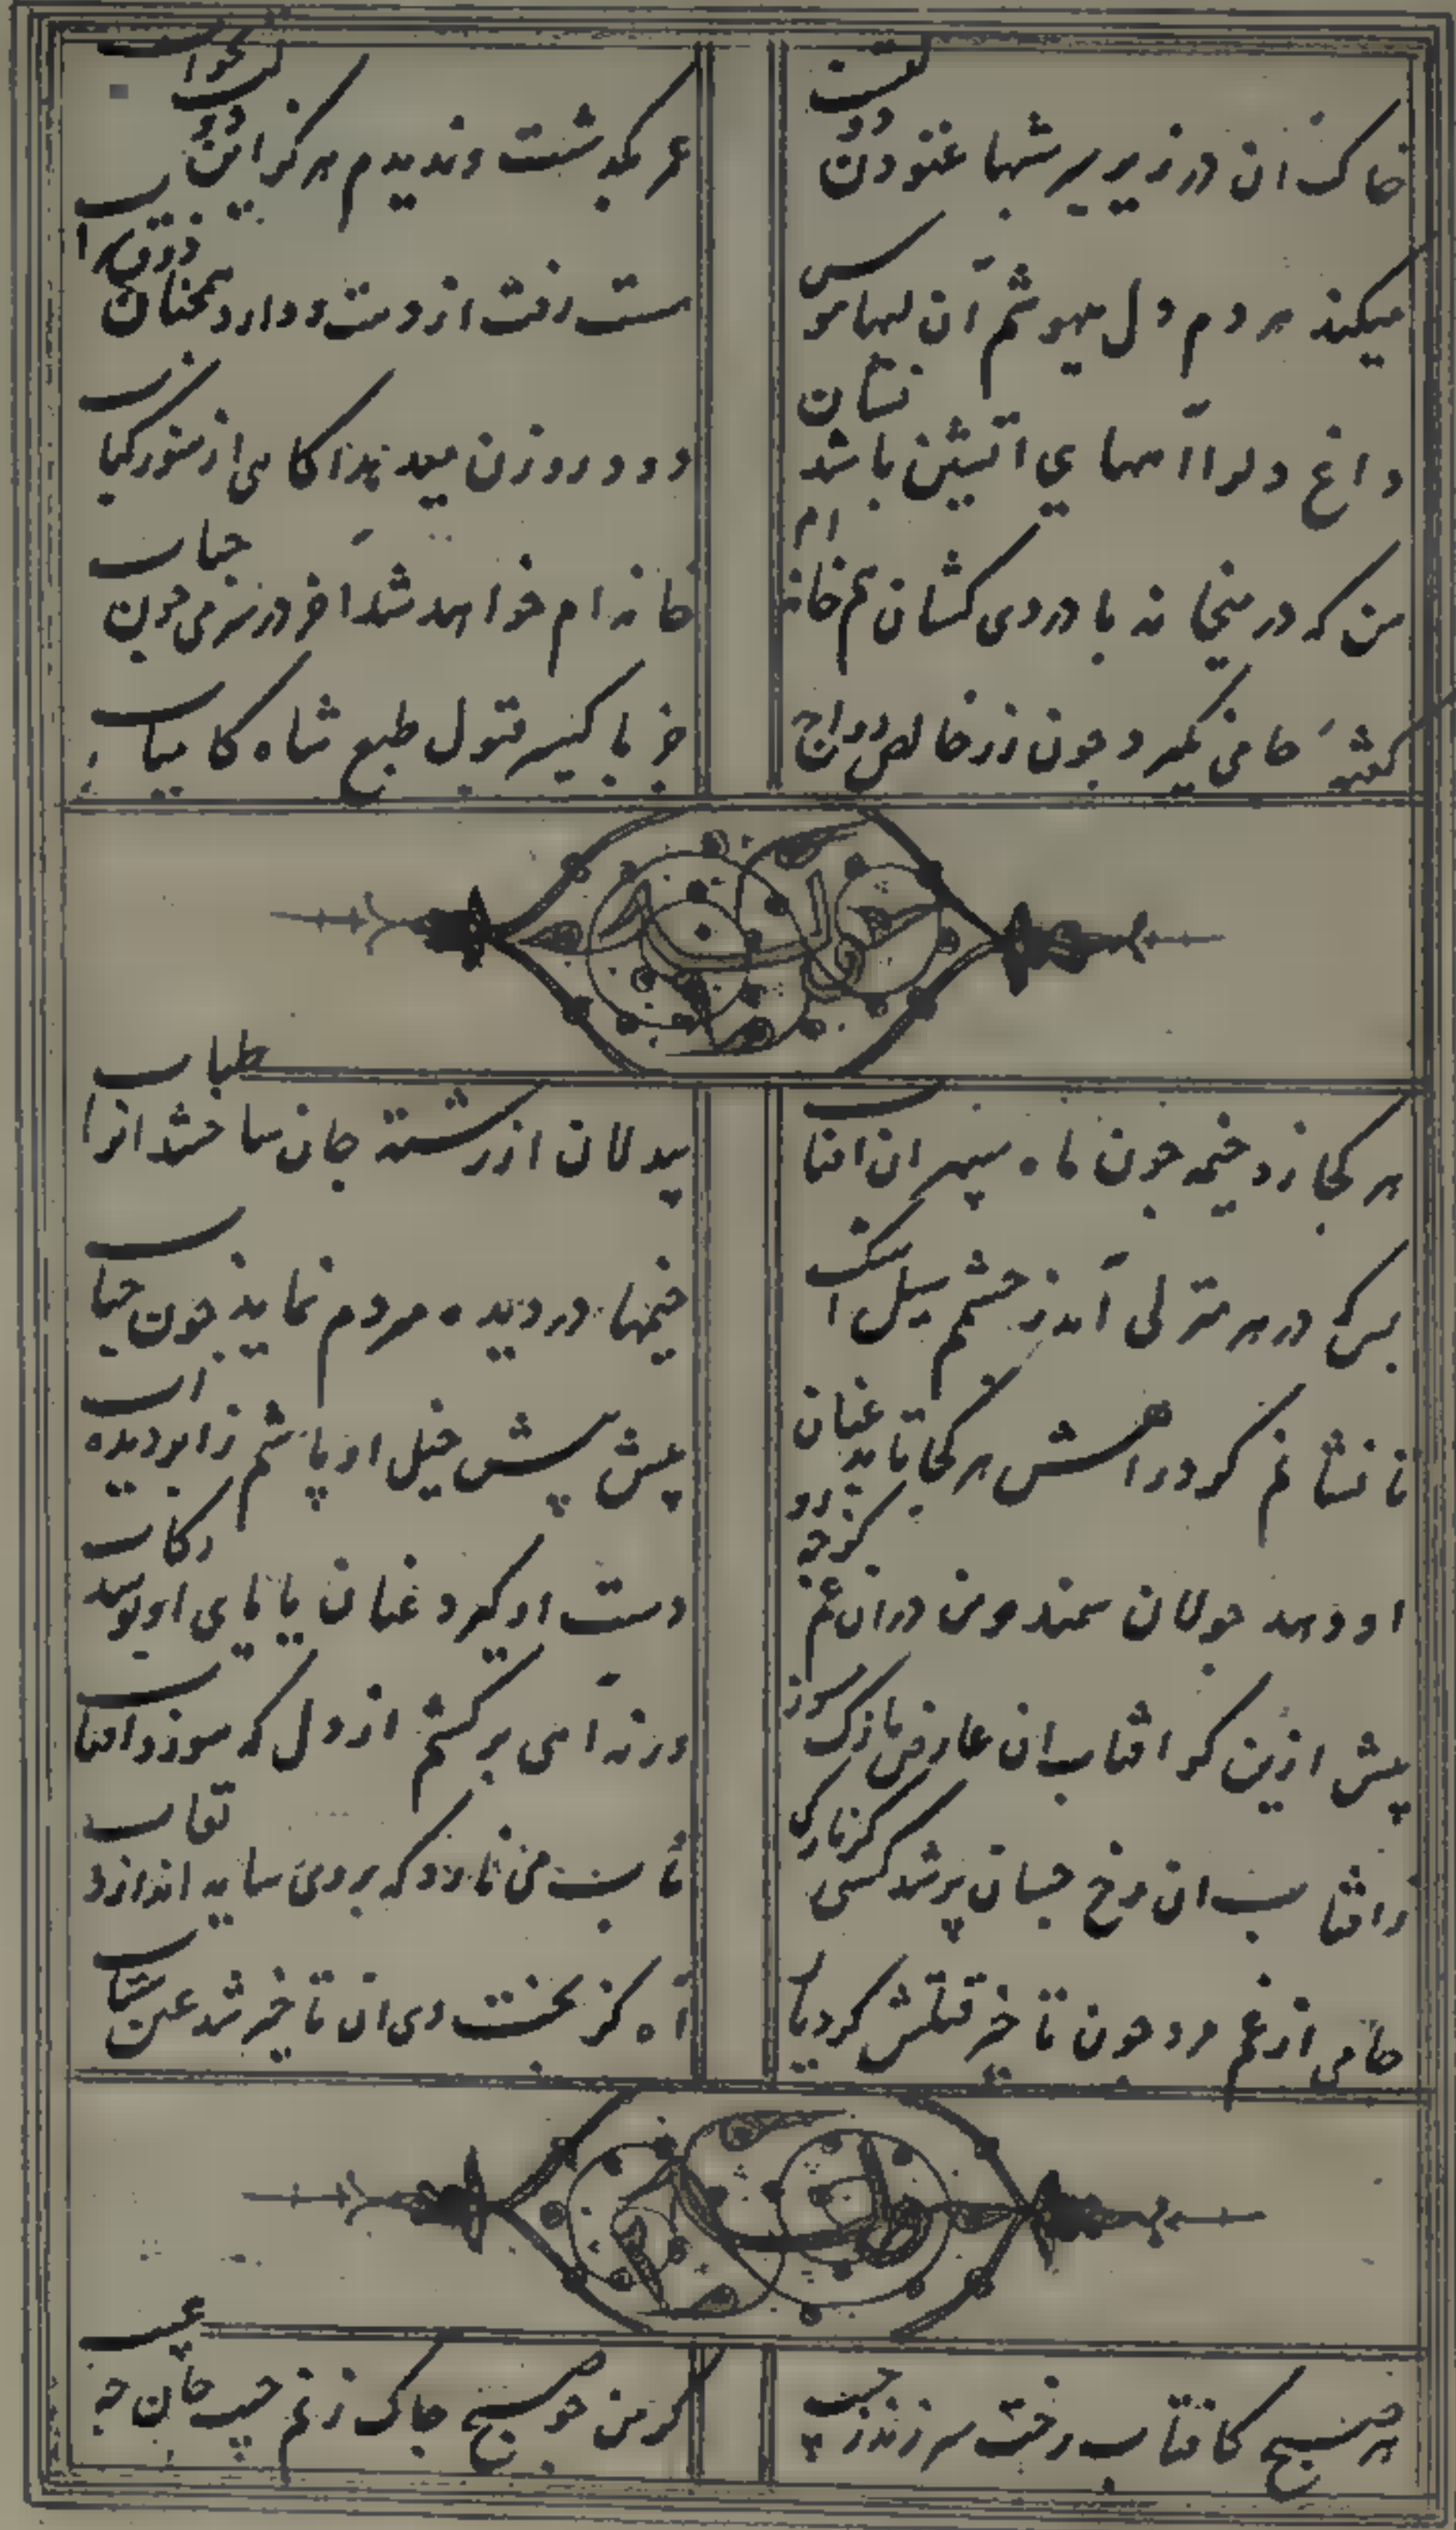 خاک ان در زیر سر شبها غنودن دولت
عمر بگذشت و ندیدم هرگز این دولت بخواب
میکند هر دم دل میهوشم آن لبها هوس
مست رفت از دست و دارد همچنان ذوق شراب
داغ دلرا آههای اتشین باشد نشان
دود در روزن میدهد اکاهی از سوز کباب
من که در میخانه با دردی کشان هم خانه ام
خانه ام خواهد شد اخر در سر می چون حباب
کفته جامی نگیرد چون زر خالص رواج
جز باکسیر قبول طبع شاه کامیاب
هر کجا زد خیمه چون ماه سپهر ان افتاب
بیدلان از رشته جان ساختند انرا طناب
بس که در هر منزلی آمد ز چشم سیل اشک
خیمها در دیده مردم نماید چون حباب
تا نشانم کرد راهش هر کجا تابد عنان
پیش پیش خیل او پاشم ز ابر دیده اب
او دهد جولان سمند و من در ان غم کز چه رو
دست او کیرد عنان یا پای او بوسد رکاب
پیش ازین کو افتاب ان عارض نازک مسوز
ورنه آهی برکشم از دل که سوزد افتاب
زافتاب ان رخ جهان پر شد کسی کز نازکی
تاب من نارد که بر وی سایه اندازد نقاب
جامی از غم مرد چون تاخیر قتلش کرد یار
آه کز بخت وی ان تاخیر شد عین شتاب
هر صبح کافتاب رخت سر زند ز جیب
کر من چو صبح چاک زنم جیب جان چه عیب